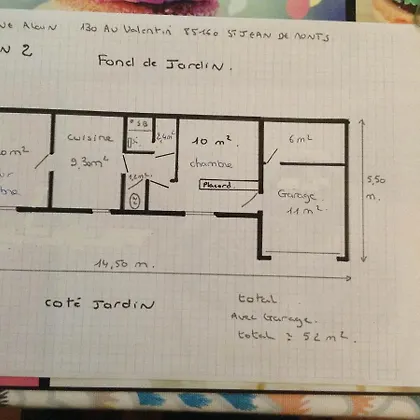 130 AU Valentin 85160 St JEAN DE MONTS
N 2
Fond de Jardin.
SdB
cuisine
2,4m²
10 m².
6 m²
9,30m²
chambre
Placard.
Garage.
11 m².
5,50
m.
14,50 m.
coté Jardin
total
Avec Garage.
total = 52 m².